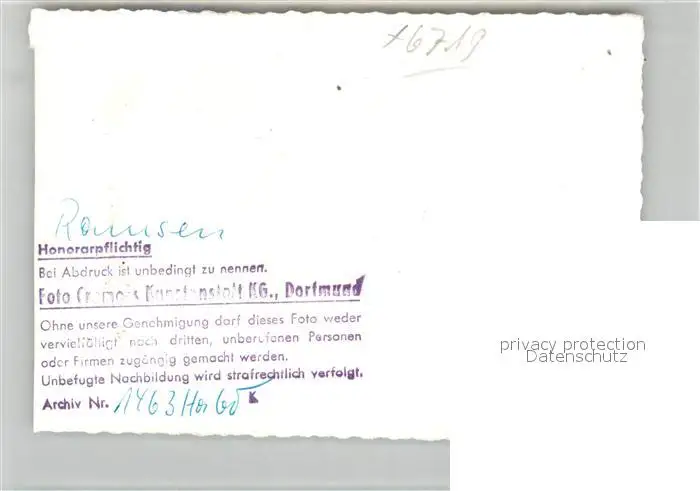 x6719
Ramsen
Honorarpflichtig
Bei Abdruck ist unbedingt zu nennen.
Foto Cramers Kunstanstalt KG., Dortmund
Ohne unsere Genehmigung darf dieses Foto weder
vervielfältigt noch dritten, unberufenen Personen
oder Firmen zugängig gemacht werden.
Unbefugte Nachbildung wird strafrechtlich verfolgt.
Archiv Nr. K
privacy protection
Datenschutz